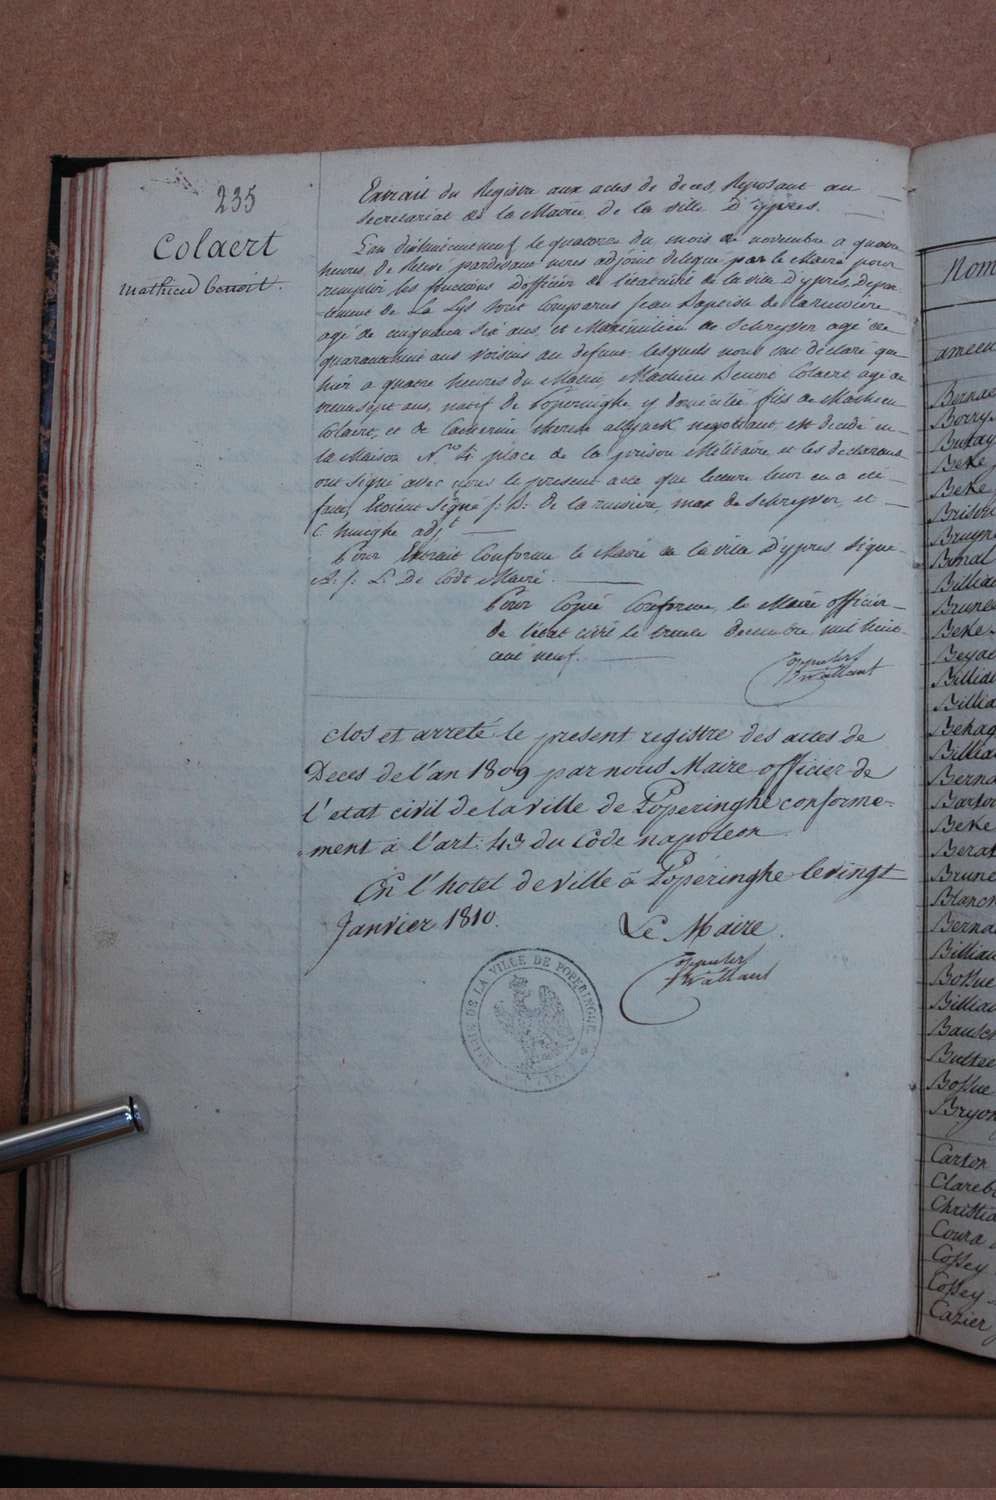 235
Colaert
mathieu benoit.
Extrait du Registre aux actes de deces, Reposant au
secretariat de la Mairie de la ville D'ypres.
L'an dixhuitcent neuf le quatorze du mois de novembre a quatre
heures de Relevé pardevant nous adjoint delegué par le Maire pour
remplir les fonctions d'officier de l'etat civil de la ville d'ypres, depar-
tement de La Lys sont Comparus Jean Baptiste de laruviere
agé de cinquante six ans, et Maximilien de Schryver agé de
quarantehuit ans Voisins du defunt lesquels nous ont déclaré que
hier a quatre heures du Matin, Mathieu Benoit Colaert agé de
ans, natif de Poperinghe y domicilié fils de Mathieu
Colaert, et de Catherine therese negotiant, est décédé en
la Maison N.ro 4 place de la prison Militaire et les declarans
ont signé avec nous le present acte que lecture leur en a été
faite, Etoient Signé J: B: de la ruviere, max de Schryver, et
C. hueghe adj.t
Pour Extrait Conforme le Maire de la ville D'ypres Signé
De Codt Maire.
Pour Copie Conforme, le Maire officier
de l'état civil le trente decembre mil huit
cent neuf.
clos et arreté le present registre des actes de
Deces de l'an 1809 par nous Maire officier de
l'etat civil de la ville de Poperinghe conforme-
ment à l'art: 43 du Code napoleon
En l'hotel de ville à Poperinghe le vingt
Janvier 1810.
Le Maire.
MAIRIE DE LA VILLE DE POPERINGUE
Nom
Berry
Butay
Beke
Beke
Bruyn
Billiau
Brune
Beke
Billiau
Billia
Behag
Billia
Berna
Barton
Beke
Berat
Brune
Blanck
Berna
Billiau
Bossue
Billia
Bossue
Bryon
Carton
Clareb
Christia
Coura
Cossey
Cossey
Cazier